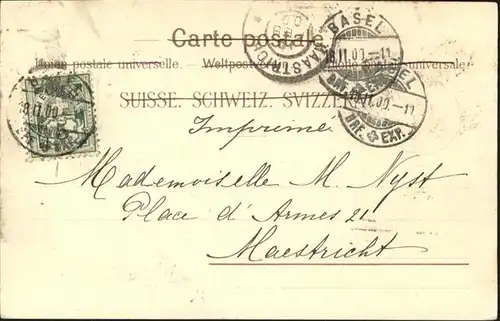 Carte postale.
Union postale universelle. Weltpostverein. postale universale.
SUISSE. SCHWEIZ. SVIZZERA.
BASEL
18.II.00.-11
BRF. EXP.
BRF. EXP.
Imprimé
Mademoiselle M. Nyst
Place d'Armes 21
Maestricht